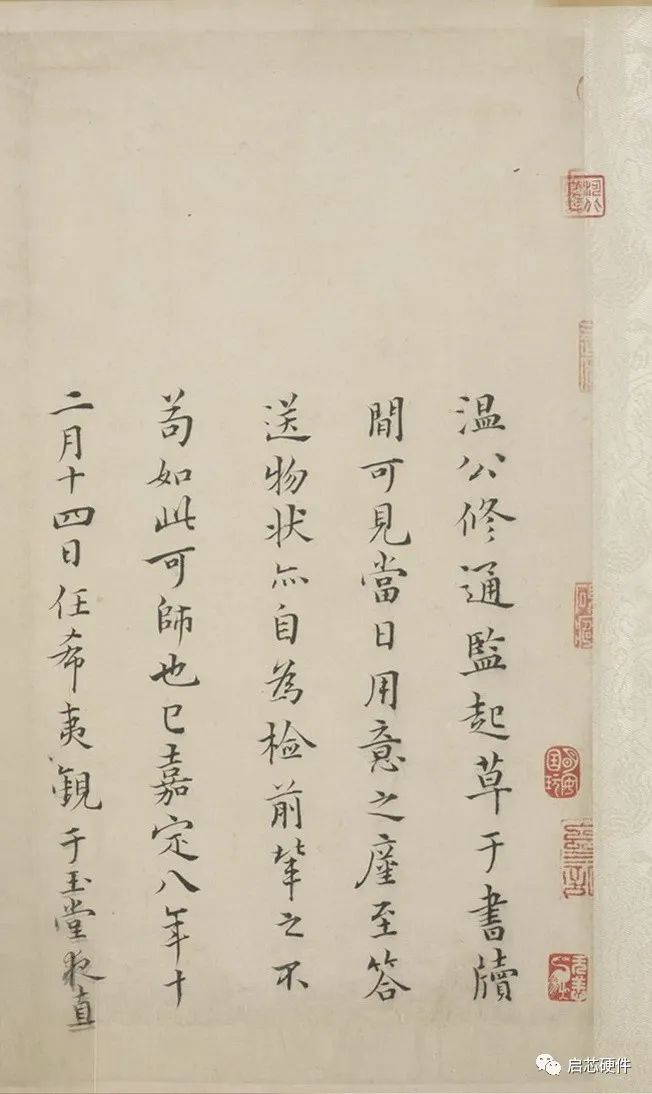 温公修通監起草于書牘
間可見當日用意之廑至答
送物状亦自為检前輩之不
苟如此可師也已嘉定八年十
二月十四日任希夷觀于玉堂夜直
启芯硬件